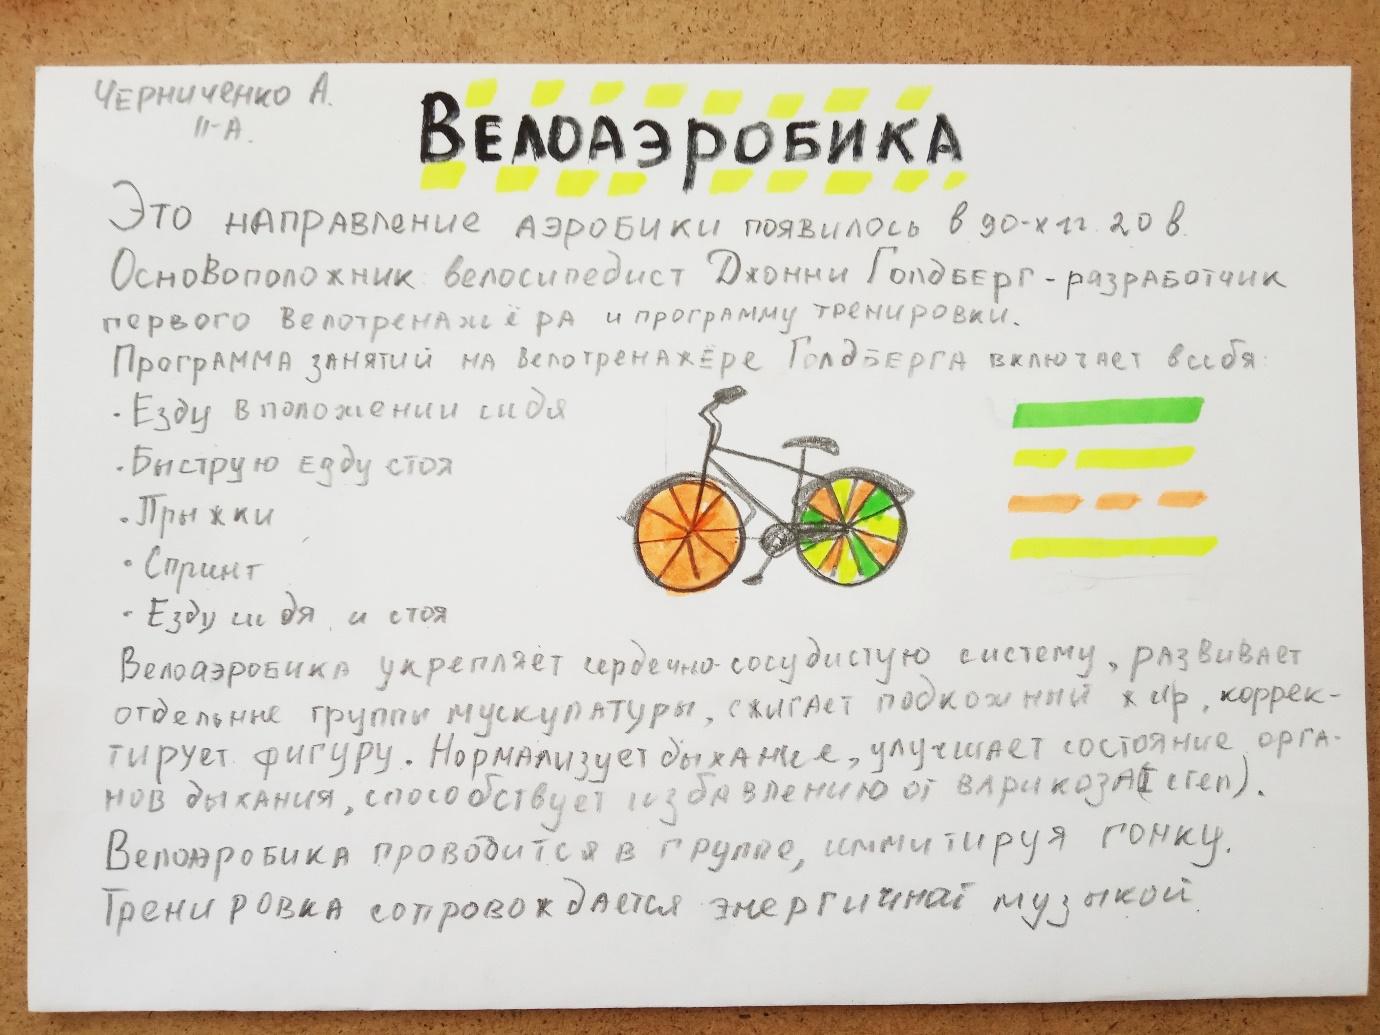 Черниченко А.
11-А.
Велоаэробика
Это направление аэробики появилось в 90-х гг. 20 в.
Основоположник велосипедист Джонни Голдберг - разработчик
первого велотренажёра и программу тренировки.
Программа занятий на велотренажёре Голдберга включает в себя:
· Езду в положении сидя
· Быструю езду стоя
· Прыжки
· Спринт
· Езду сидя и стоя
Велоаэробика укрепляет сердечно-сосудистую систему, развивает
отдельные группы мускулатуры, сжигает подкожный жир, коррек-
тирует фигуру. Нормализует дыхание, улучшает состояние орга-
нов дыхания, способствует избавлению от варикоза (I степ).
Велоаэробика проводится в группе, иммитируя гонку.
Тренировка сопровождается энергичной музыкой.